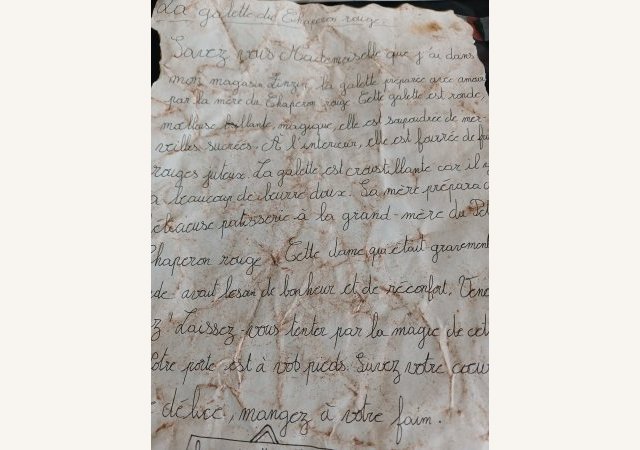 La galette du Chaperon rouge
Savez vous Mademoiselle que j'ai dans
mon magasin Zinzin, la galette préparée avec amour
par la mère du Chaperon rouge Cette galette est ronde,
moelleuse brillante, magique, elle est saupoudrée de mer-
veilles sucrées. A l'interieur, elle est fourrée de fru
rouges juteux. La galette est croustillante car il y
a beaucoup de beurre doux. Sa mère prépara c
patisserie à la grand-mère du Pet
Chaperon rouge. Cette dame qui était gravement
de avait besoin de bonheur et de réconfort. Vene
z! Laissez-vous tenter par la magie de cet
otre porte est à vos pieds. Suivez votre coeur
délice, mangez à votre faim.